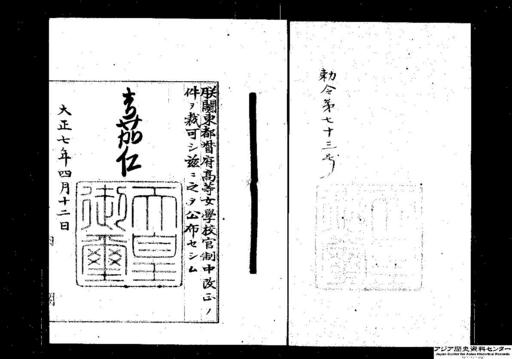 勅令第七十三号
朕關東都督府高等女學校官制中改正ノ
件ヲ裁可シ茲ニ之ヲ公布セシム
嘉仁
天皇
御璽
大正七年四月十二日
内閣
アジア歴史資料センター
Japan Center for Asian Historical Records